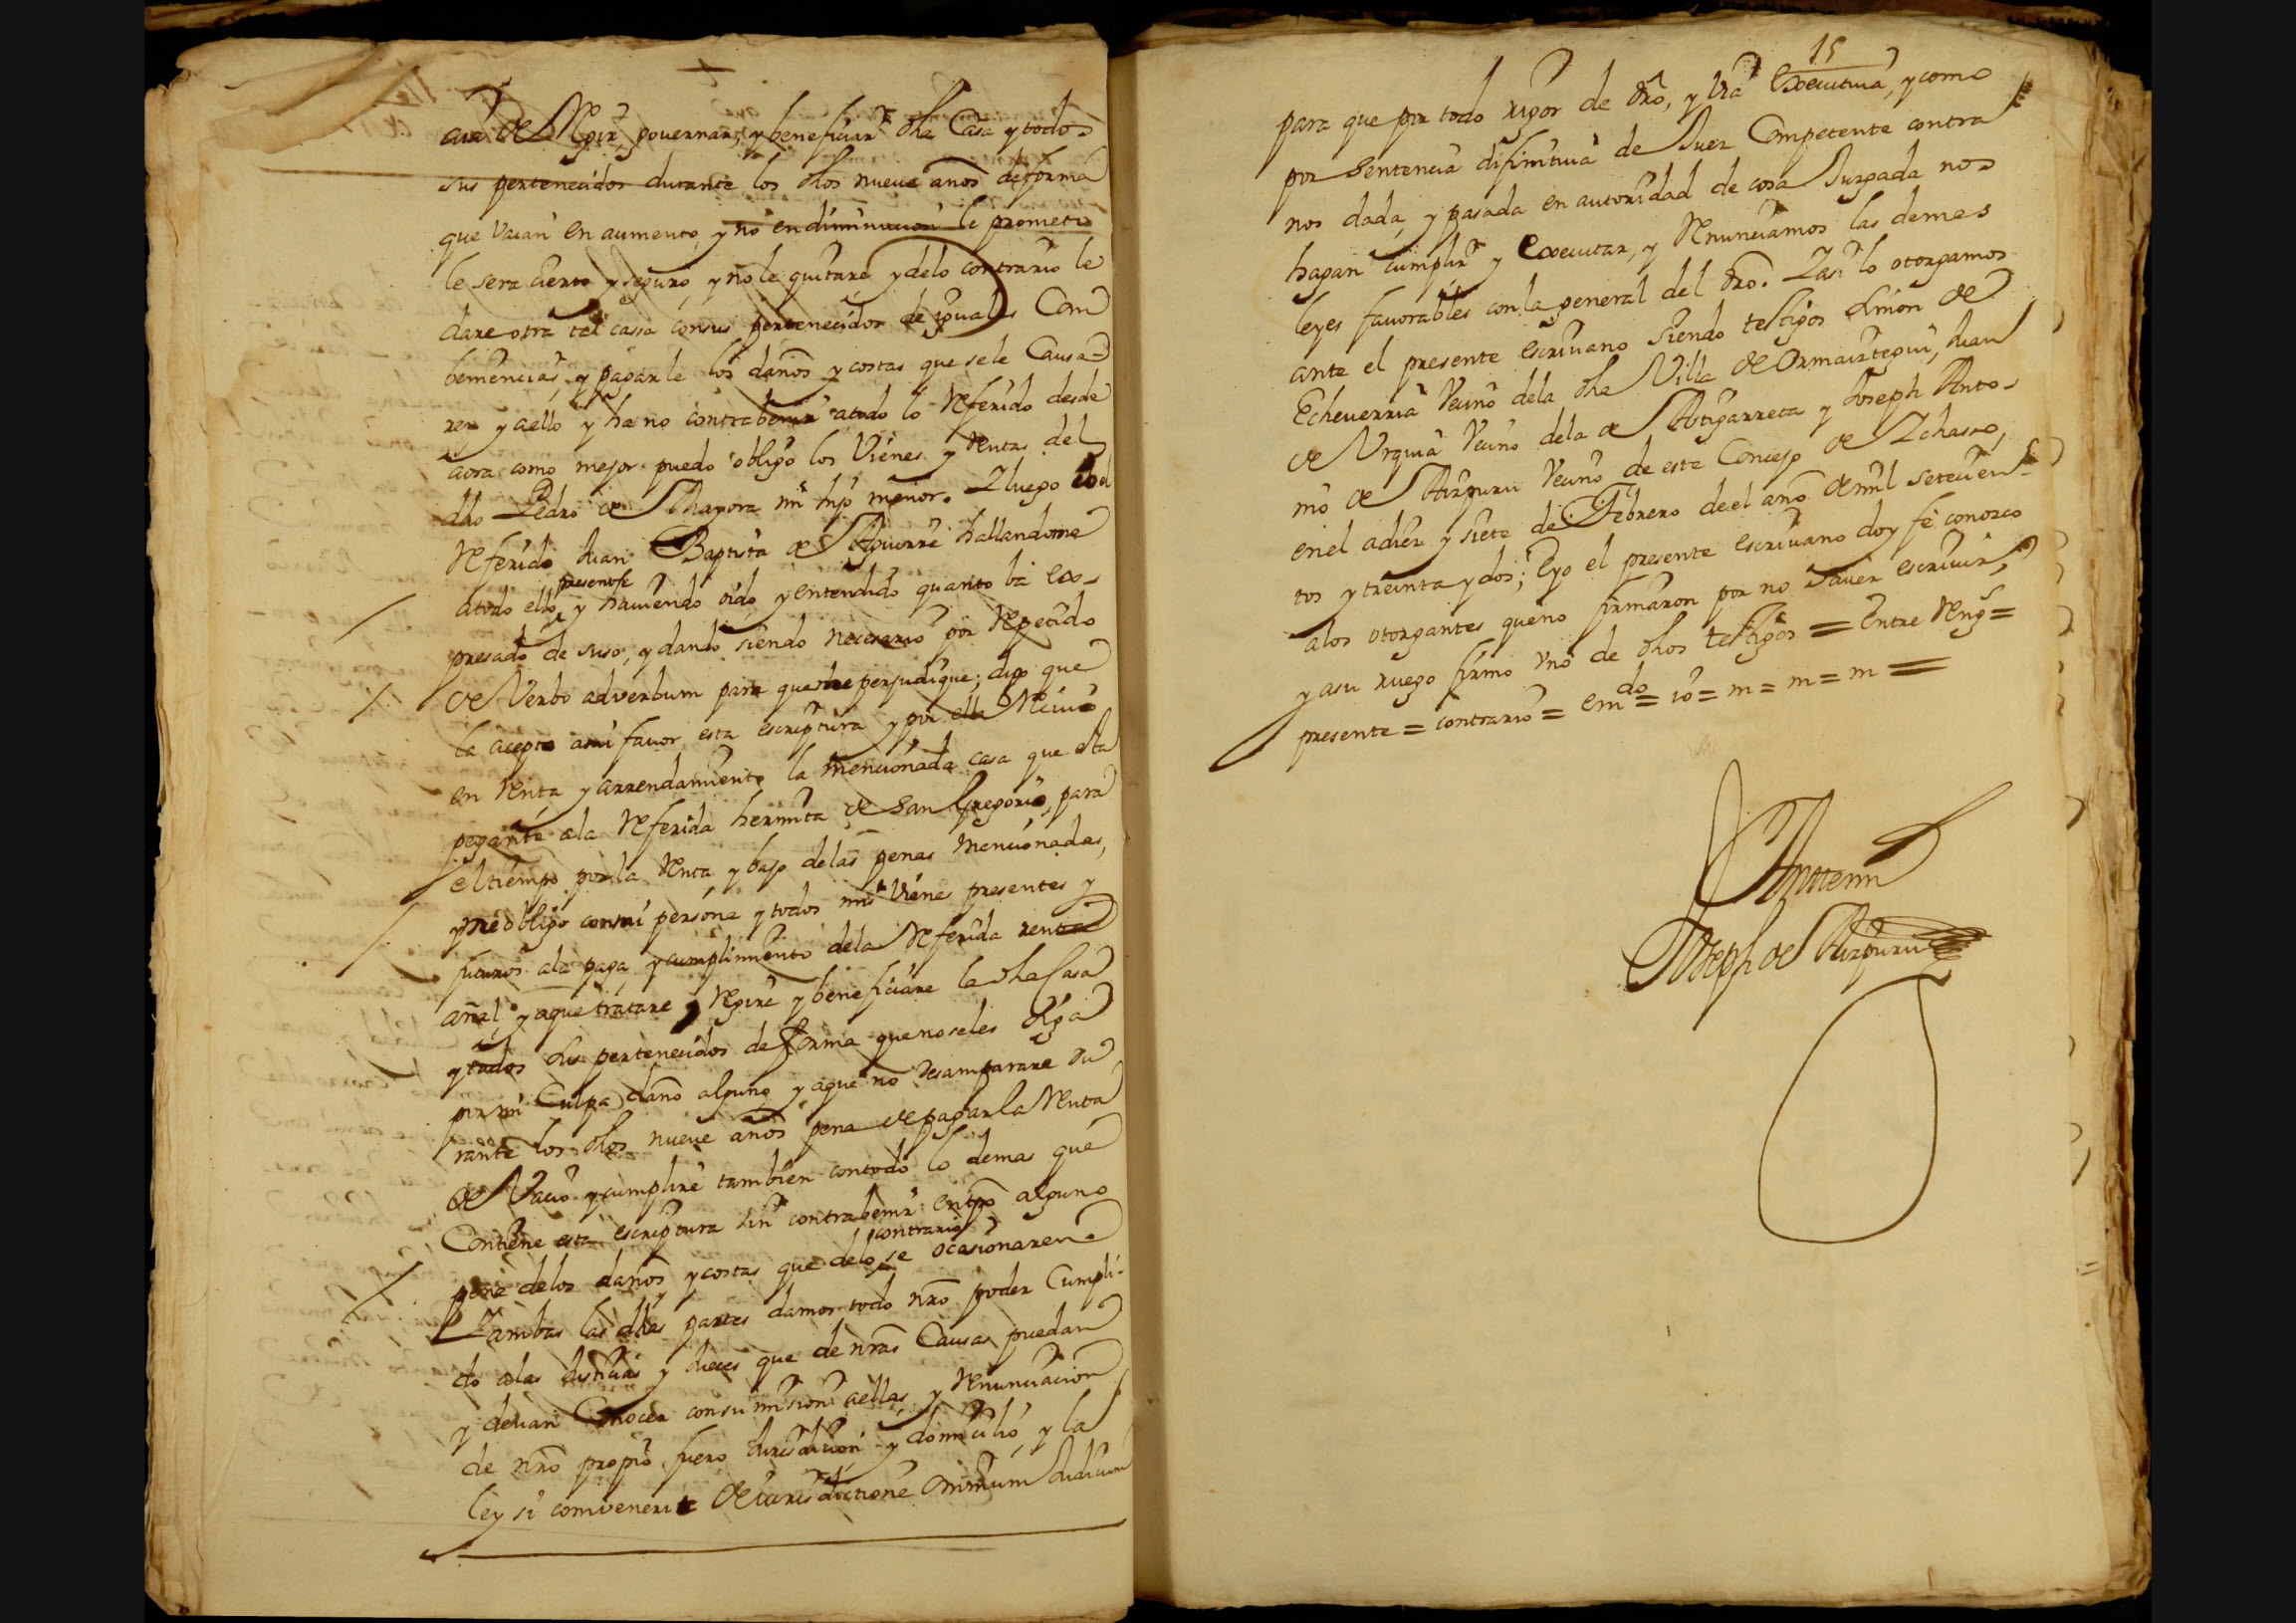 cia de Regir, governar, y beneficiar dha Casa y todos
sus pertenecidos durante los dhos nueve años deforma
que vaian en aumento, y no en diminucion le prometo
le sera cierto y seguro, y no le quitare, y delo contrario le
dare otra tal cassa consus pertenecidos de iguales Com
beniencias, y pagarle los daños y costas que sele Causa-
ren y aello y ha no contrabenir atodo lo Referido desde
aora como mejor puedo obligo los Vienes y Rentas del
dho Pedro de Mayora mi hijo menor. Y luego io el
Referido Juan Baptista de Aguirre hallandome
presente
atodo ello, y haviendo oido y entendido quanto ba ex-
presado de suso, y dando siendo necesario por Repetido
de Verbo adverbum para que me perjudique; dijo que
la acepto ami favor esta escriptura y por ella Recivo
en Renta y arrendamiento la mencionada casa que esta
pegante ala Referida hermita de San Gregorio, para
el tiempo por la Renta y bajo delas penas mencionadas,
y me obligo conmi persona y todos mis Vienes presentes y
futuros ala paga y cumplimiento dela Referida renta
añal, y aque tratare y Regire y beneficiare la dha Casa
y todos sus pertenecidos deforma quenoseles siga
por mi Culpa daño alguno, y aque no desamparare du
rante los dhos nueve años pena de pagar la Renta
de Vacio y cumplire tambien contodo lo demas que
Contiene esta escriptura sin contrabenir entpo alguno
contrario
pena delos daños y costas que delo se ocasionaren.
Y ambas las dhas partes damos todo nro poder Cumpli-
do alas Justicias y Jueces que de nras Causas puedan
y devan Conocer consumision aellas, y Renunciacion
de nro propio fuero Jurisdicion y domicilio, y la
ley si combenerit de iurisdictione omnium Judicum
15
para que por todo rigor de dro, y via Executiva, y como
por sentencia difinitiva de Juez Competente contra
nos dada, y pasada en autoridad de cosa Juzgada nos
hagan cumplir y Executar, y Renunciamos las demas
leyes favorables con la general del dro. Y asi lo otorgamos
ante el presente escrivano siendo testigos Simon de
Echeverria Vecino dela dha Villa de Ormaiztegui, Juan
de Urquia Vecino dela de Astigarreta y Joseph Anto-
nio de Aizpuru Vecino de este Concejo de Ychasso,
en el adiez y siete de Febrero de el año de mil setecien-
tos y treinta y dos; E yo el presente escrivano doy fe conozco
alos otorgantes que no firmaron por no saver escrivir,
y asu ruego firmo uno de dhos testigos = Entre Reng =
presente = contrario = emdo = io = m = m = m =
Ante mi
Joseph de Aizpuru